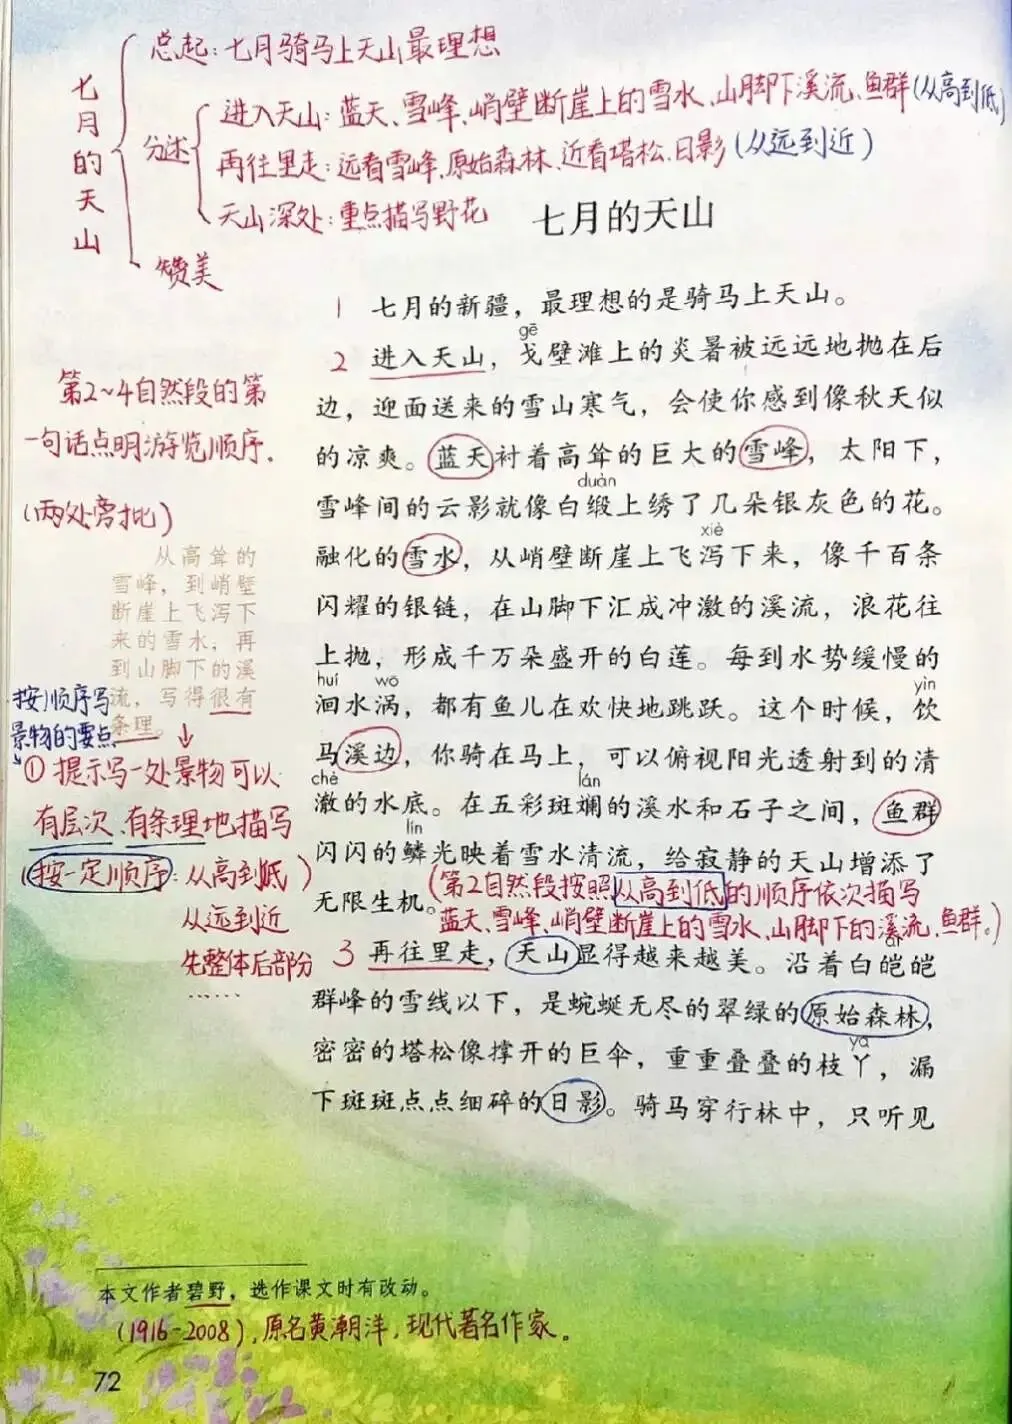 七月的天山
总起：七月骑马上天山最理想
分述
进入天山：蓝天、雪峰、峭壁断崖上的雪水、山脚下溪流、鱼群(从高到低)
再往里走：远看雪峰、原始森林、近看塔松、日影(从远到近)
天山深处：重点描写野花
赞美
七月的天山
1 七月的新疆，最理想的是骑马上天山。
gē
2 进入天山，戈壁滩上的炎暑被远远地抛在后
边，迎面送来的雪山寒气，会使你感到像秋天似
的凉爽。蓝天衬着高耸的巨大的雪峰，太阳下，
duàn
雪峰间的云影就像白缎上绣了几朵银灰色的花。
xiè
融化的雪水，从峭壁断崖上飞泻下来，像千百条
闪耀的银链，在山脚下汇成冲激的溪流，浪花往
上抛，形成千万朵盛开的白莲。每到水势缓慢的
huí wō yìn
洄水涡，都有鱼儿在欢快地跳跃。这个时候，饮
马溪边，你骑在马上，可以俯视阳光透射到的清
chè lán
澈的水底。在五彩斑斓的溪水和石子之间，鱼群
lín
闪闪的鳞光映着雪水清流，给寂静的天山增添了
无限生机。
(第2自然段按照从高到低的顺序依次描写
蓝天、雪峰、峭壁断崖上的雪水、山脚下的溪流、鱼群。)
ái
3 再往里走，天山显得越来越美。沿着白皑皑
群峰的雪线以下，是蜿蜒无尽的翠绿的原始森林，
密密的塔松像撑开的巨伞，重重叠叠的枝丫，漏
yā
下斑斑点点细碎的日影。骑马穿行林中，只听见
第2~4自然段的第
一句话点明游览顺序.
(两处旁批)
从高耸的
雪峰，到峭壁
断崖上飞泻下
来的雪水，再
到山脚下的溪
流，写得很有
条理。
按顺序写
景物的要点
①提示写一处景物可以
有层次、有条理地描写
(按一定顺序：从高到低)
从远到近
先整体后部分
……
本文作者碧野，选作课文时有改动。
(1916-2008)，原名黄潮洋，现代著名作家。
72